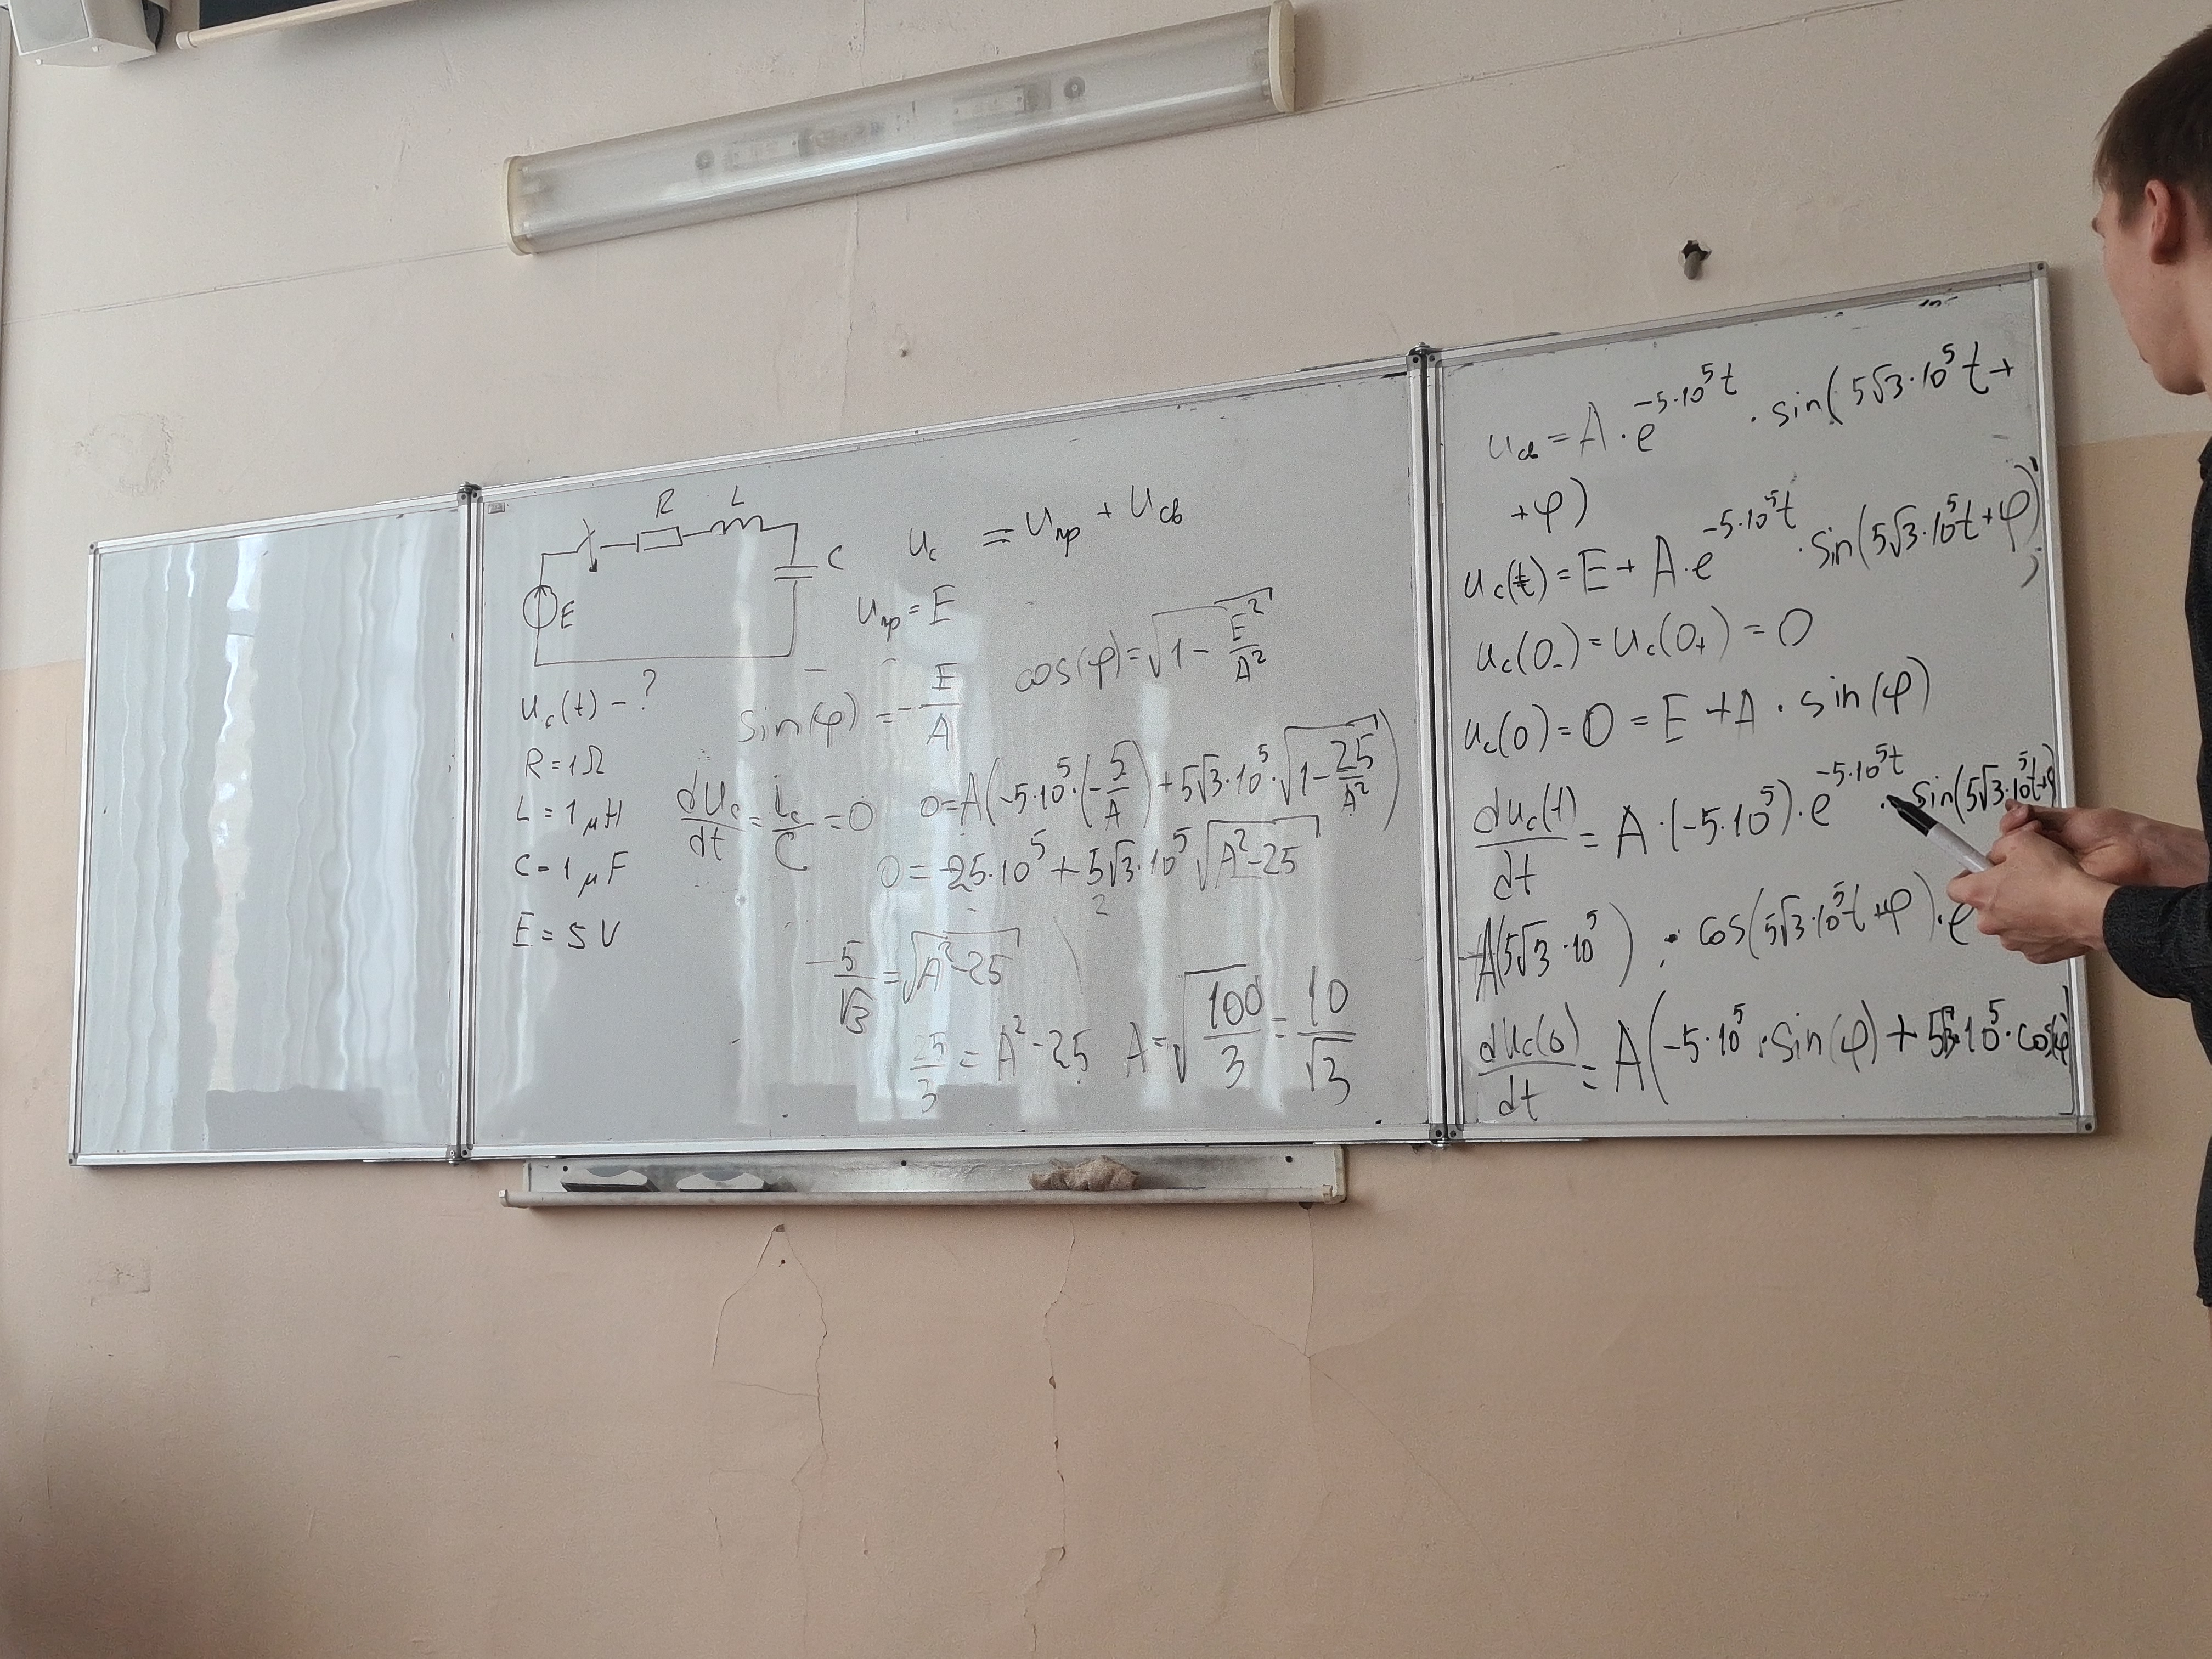 R L
C
E
u_c(t) - ?
R = 1Ω
L = 1 μH
C = 1 μF
E = 5 V
u_c = u_пр + u_св
u_пр = E
sin(φ) = -E/A cos(φ) = √(1 - E²/A²)
du_c/dt = i_c/C = 0 0 = A(-5·10⁵·(-5/A) + 5√3·10⁵·√(1 - 25/A²))
0 = -25·10⁵ + 5√3·10⁵ √(A² - 25)
-5/√3 = √(A² - 25)
25/3 = A² - 25 A = √(100/3) = 10/√3
u_св = A · e^(-5·10⁵t) · sin(5√3·10⁵t +
+ φ)
u_c(t) = E + A·e^(-5·10⁵t) · sin(5√3·10⁵t + φ);
u_c(0₋) = u_c(0₊) = 0
u_c(0) = 0 = E + A · sin(φ)
du_c(t)/dt = A·(-5·10⁵)·e^(-5·10⁵t) · sin(5√3·10⁵t+φ)
A(5√3·10⁵) · cos(5√3·10⁵t + φ)·e
du_c(0)/dt = A(-5·10⁵ · sin(φ) + 5√3·10⁵·cos(φ)